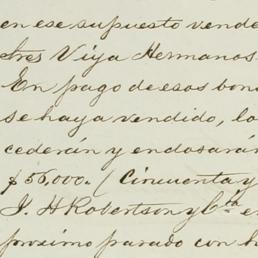 en ese supuesto vende
tres Viya Hermanos
En pago de esos bon
se haya vendido, lo
cederán y endosarán
$56,000. (Cincuenta y
J. H Robertson y Cta e
proximo pasado con h